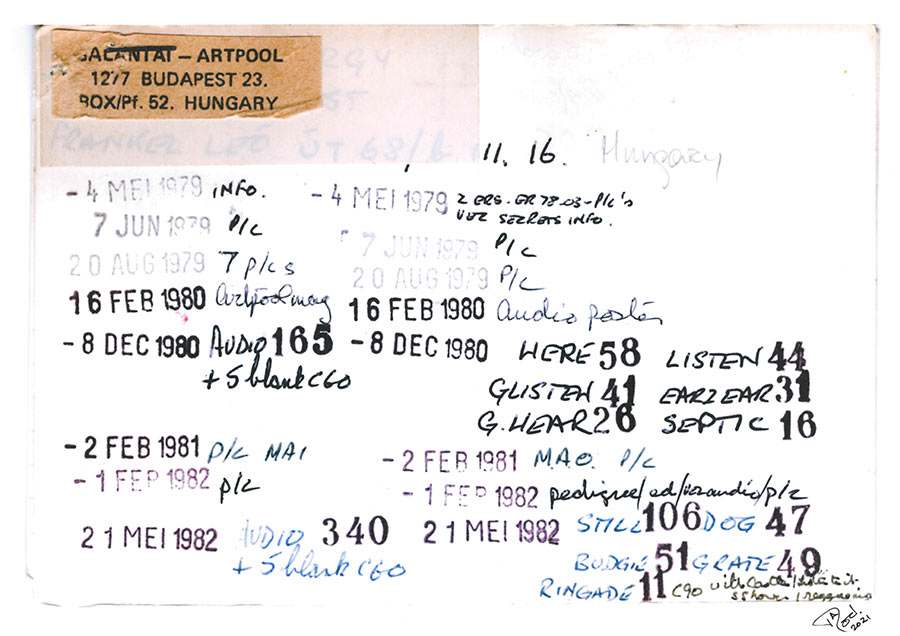 GALÁNTAI – ARTPOOL
1277 BUDAPEST 23.
BOX/Pf. 52. HUNGARY
FRANKEL LEÓ ÚT 68/b
11. 16. Hungary
- 4 MEI 1979 INFO. - 4 MEI 1979 2 ERS-ER 78-03-P/c's
INFO.
7 JUN 1979 P/c 7 JUN 1979 P/c
20 AUG 1979 7 p/cs 20 AUG 1979 P/c
16 FEB 1980 Artpool mag 16 FEB 1980 audio poster
- 8 DEC 1980 AUDIO 165 - 8 DEC 1980 HERE 58 LISTEN 44
+ 5 blank C60 GLISTEN 41 EARZEAR 31
G. HEAR 26 SEPTIC 16
- 2 FEB 1981 p/c MAI - 2 FEB 1981 M.A.O. P/c
- 1 FEB 1982 p/c - 1 FEB 1982 pedigree/ed/vezaudio/p/c
21 MEI 1982 AUDIO 340 21 MEI 1982 STILL 106 DOG 47
+ 5 blank C60 BUDGIE 51 GRATE 49
RINGADE 11 C90 with
2021